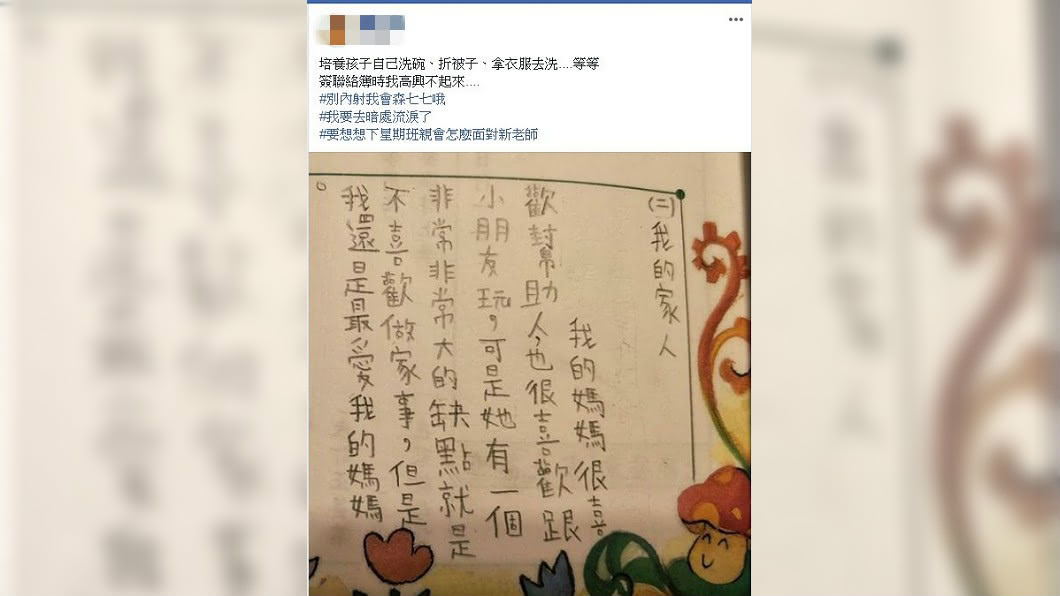 培養孩子自己洗碗、折被子、拿衣服去洗....等等
簽聯絡簿時我高興不起來....
#別內射我會森七七哦
#我要去暗處流淚了
#要想想下星期班親會怎麼面對新老師
(二)我的家人
我的媽媽很喜
歡幫助人,也很喜歡跟
小朋友玩,可是她有一個
非常非常大的缺點就是
不喜歡做家事,但是
我還是最愛我的媽媽
。